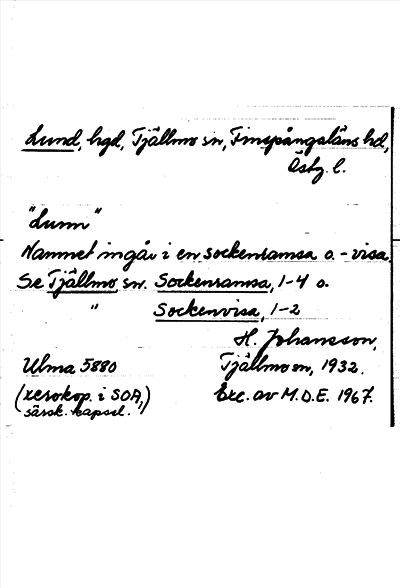 Lund, hgd, Tjällmo sn, Finspångaläns hd,
Östg. l.
"Lunn"
Namnet ingår i en sockenramsa o. -visa.
Se Tjällmo sn. Sockenramsa, 1-4 o.
" Sockenvisa, 1-2
H. Johansson,
Ulma 5880 Tjällmo sn, 1932.
(xerokop. i SOA, Exc. av M.D.E. 1967.
särsk. kapsel.)